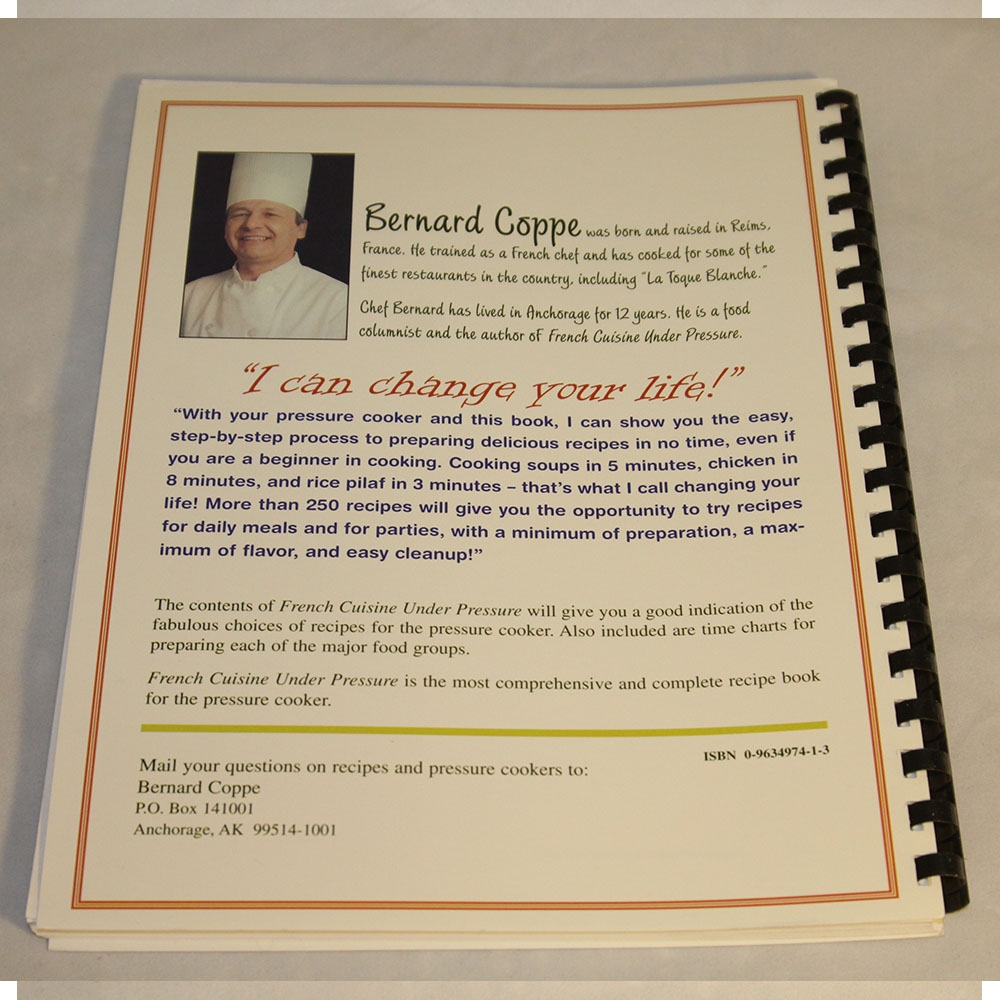 Bernard Coppe was born and raised in Reims,
France. He trained as a French chef and has cooked for some of the
finest restaurants in the country, including "La Toque Blanche."
Chef Bernard has lived in Anchorage for 12 years. He is a food
columnist and the author of French Cuisine Under Pressure.
"I can change your life!"
"With your pressure cooker and this book, I can show you the easy,
step-by-step process to preparing delicious recipes in no time, even if
you are a beginner in cooking. Cooking soups in 5 minutes, chicken in
8 minutes, and rice pilaf in 3 minutes – that's what I call changing your
life! More than 250 recipes will give you the opportunity to try recipes
for daily meals and for parties, with a minimum of preparation, a max-
imum of flavor, and easy cleanup!"
The contents of French Cuisine Under Pressure will give you a good indication of the
fabulous choices of recipes for the pressure cooker. Also included are time charts for
preparing each of the major food groups.
French Cuisine Under Pressure is the most comprehensive and complete recipe book
for the pressure cooker.
ISBN 0-9634974-1-3
Mail your questions on recipes and pressure cookers to:
Bernard Coppe
P.O. Box 141001
Anchorage, AK 99514-1001